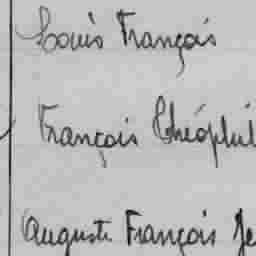 Louis François
François Théophil
Auguste François Je